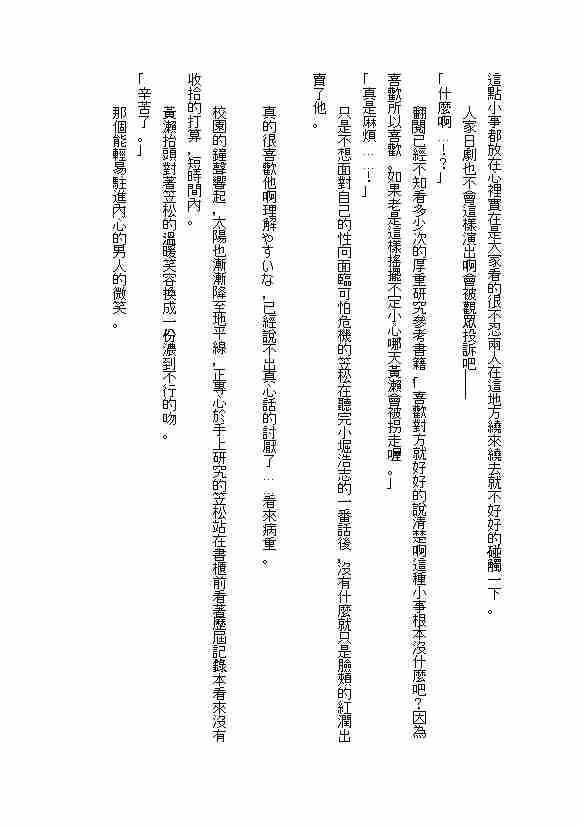 這點小事都放在心裡實在是大家看的很不忍兩人在這地方繞來繞去就不好好的碰觸一下。
人家日劇也不會這樣演出啊會被觀眾投訴吧——
「什麼啊…！？」
翻閱已經不知看多少次的厚重研究參考書籍，「喜歡對方就好好的說清楚啊這種小事根本沒什麼吧？因為
喜歡所以喜歡，如果老是這樣搖擺不定小心哪天黃瀨會被拐走喔。」
「真是麻煩……！」
只是不想面對自己的性向面臨可怕危機的笠松在聽完小堀浩志的一番話後，沒有什麼就只是臉頰的紅潤出
賣了他。
真的很喜歡他啊理解やすいな，已經說不出真心話的討厭了……看來病重。
校園的鐘聲響起，太陽也漸漸降至地平線，正專心於手上研究的笠松站在書櫃前看著歷屆記錄本看來沒有
收拾的打算，短時間內。
黃瀨抬頭對著笠松的溫暖笑容換成一份濃到不行的吻。
「辛苦了。」
那個能輕易駐進內心的男人的微笑。